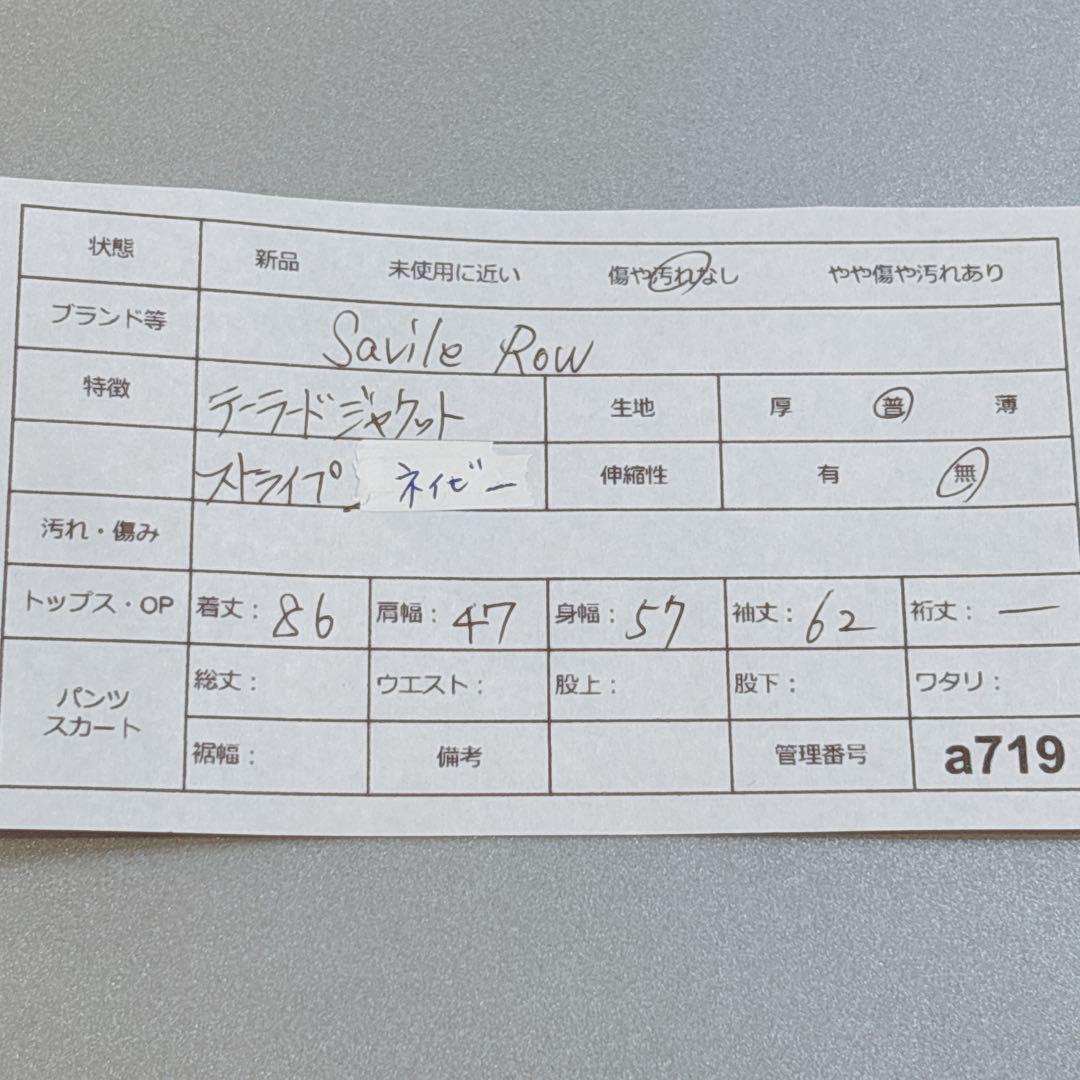 状態 新品 未使用に近い 傷や汚れなし やや傷や汚れあり
ブランド等 Savile Row
特徴 テーラードジャケット 生地 厚 普 薄
ストライプ ネイビー 伸縮性 有 無
汚れ・傷み
トップス・OP 着丈: 86 肩幅: 47 身幅: 57 袖丈: 62 裄丈: ー
パンツ スカート 総丈: ウエスト: 股上: 股下: ワタリ:
裾幅: 備考 管理番号 a719